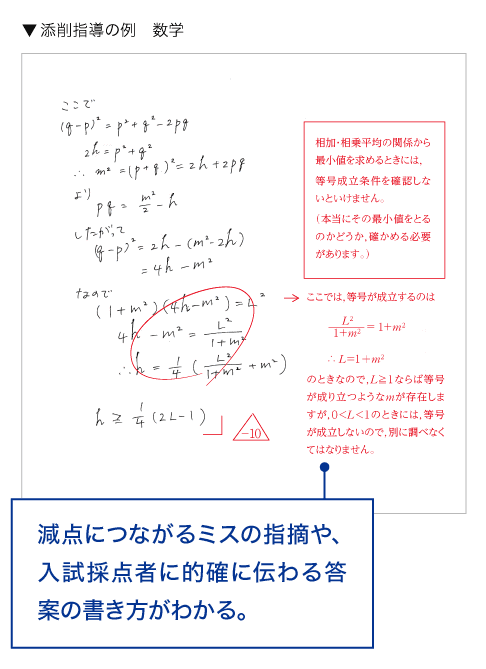 ▼添削指導の例　数学
ここで
(q-p)² = p²+q²-2pq
2h = p²+q²
∴ m² = (p+q)² = 2h+2pq
より
pq = m²/2 - h
したがって
(q-p)² = 2h-(m²-2h)
= 4h-m²
なので
(1+m²)(4h-m²) = L²
4h-m² = L²/(1+m²)
∴ h = 1/4 (L²/(1+m²) + m²)
h ≥ 1/4 (2L-1)
-10
相加・相乗平均の関係から
最小値を求めるときには、
等号成立条件を確認しな
いといけません。
(本当にその最小値をとる
のかどうか、確かめる必要
があります。)
→ ここでは、等号が成立するのは
L²/(1+m²) = 1+m²
∴ L=1+m²
のときなので、L≧1ならば等号
が成り立つようなmが存在しま
すが、0<L<1のときには、等号
が成立しないので、別に調べなく
てはなりません。
減点につながるミスの指摘や、
入試採点者に的確に伝わる答
案の書き方がわかる。